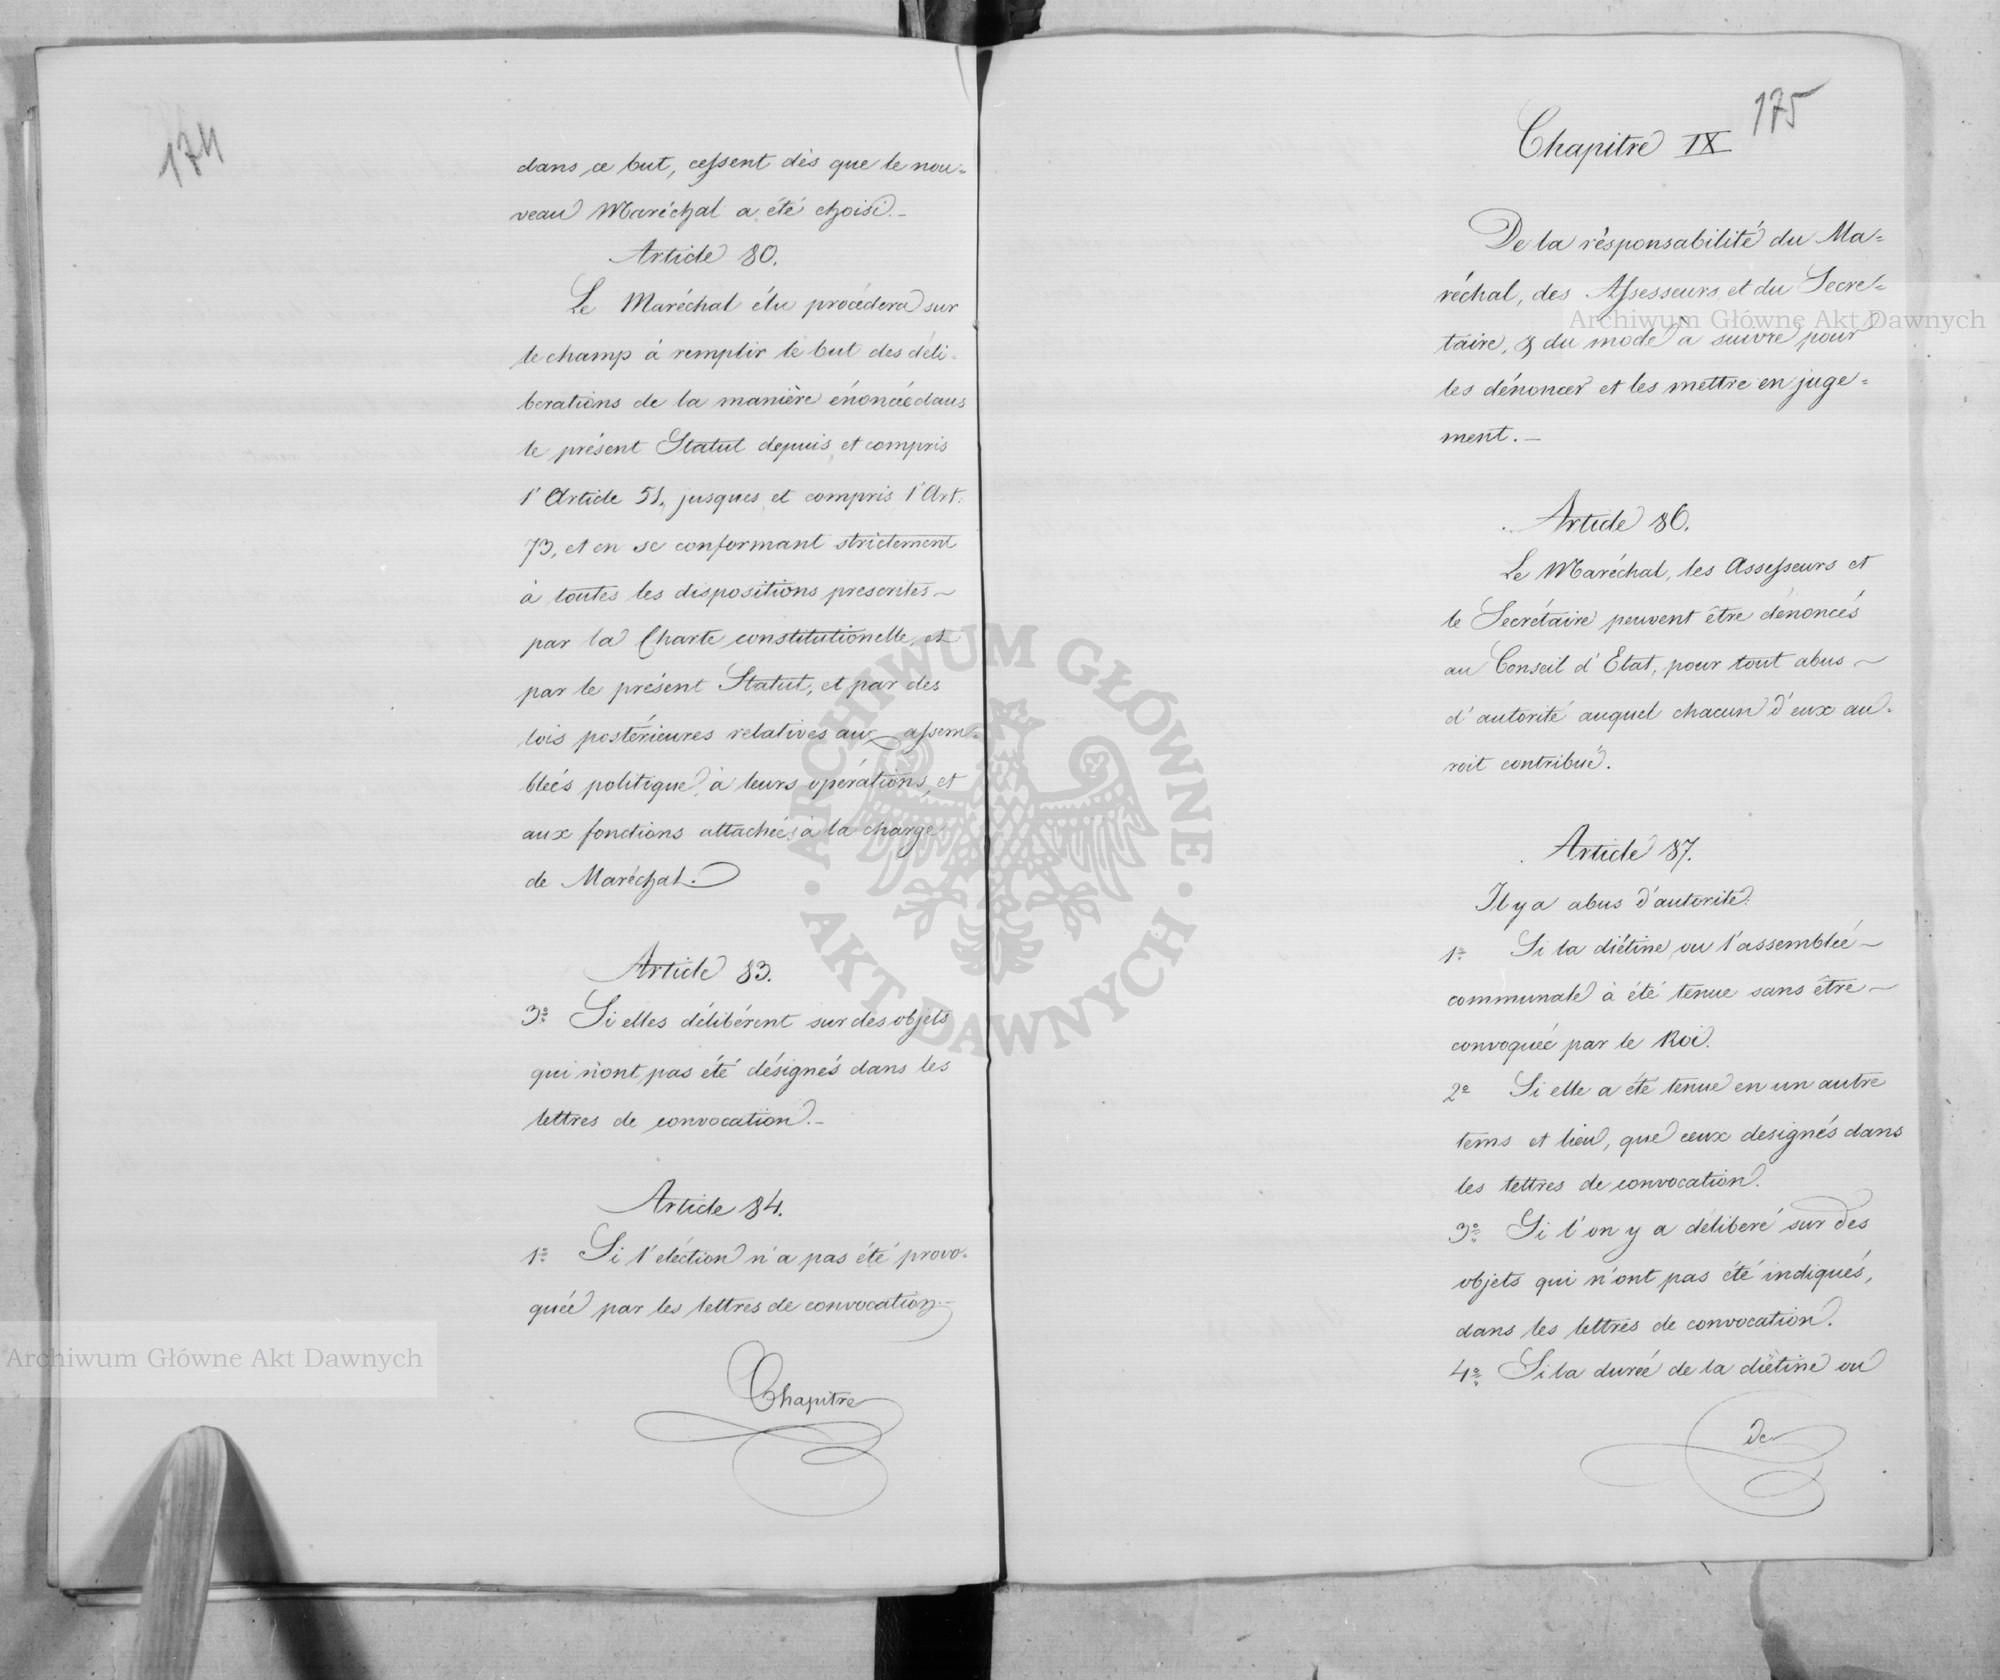 174
dans ce but, cessent dès que le nou=
veau Maréchal a été choisi.-
Article 80.
Le Maréchal élu procédera sur
le champ à remplir le but des déli-
bérations de la manière énoncée dans
le présent Statut depuis et compris
l'Article 51, jusques et compris l'Art.
73, et en se conformant strictement
à toutes les dispositions prescrites-
par la Charte constitutionelle, et
par le présent Statut, et par des
lois postérieures relatives aux assem-
bleés politique, à leurs opérations, et
aux fonctions attachées à la charge
de Maréchal.
Article 83.
3º Si elles délibérent sur des objets
qui n'ont pas été désignés dans les
lettres de convocation.-
Article 84.
1º Si l'eléction n'a pas été provo-
quée par les lettres de convocation.-
Chapitre
175
Chapitre IX
De la résponsabilité du Ma=
réchal, des Assesseurs et du Secre=
taire, & du mode à suivre pour
les dénoncer et les mettre en juge=
ment.-
Article 86.
Le Maréchal, les Assesseurs et
le Secrétaire peuvent être dénoncés
au Conseil d'Etat, pour tout abus-
d'autorité auquel chacun d'eux au-
roit contribué.
Article 87.
Il y a abus d'autorité.
1º Si la diétine ou l'assembleé-
communale à été tenue sans être-
convoquée par le Roi.
2º Si elle a été tenue en un autre
tems et lieu, que ceux designés dans
les lettres de convocation.
3º Si l'on y a déliberé sur des
objets qui n'ont pas été indiqués,
dans les lettres de convocation.
4º Si la dureé de la diétine ou
de
Archiwum Główne Akt Dawnych
Archiwum Główne Akt Dawnych
ARCHIWUM GŁÓWNE
AKT DAWNYCH